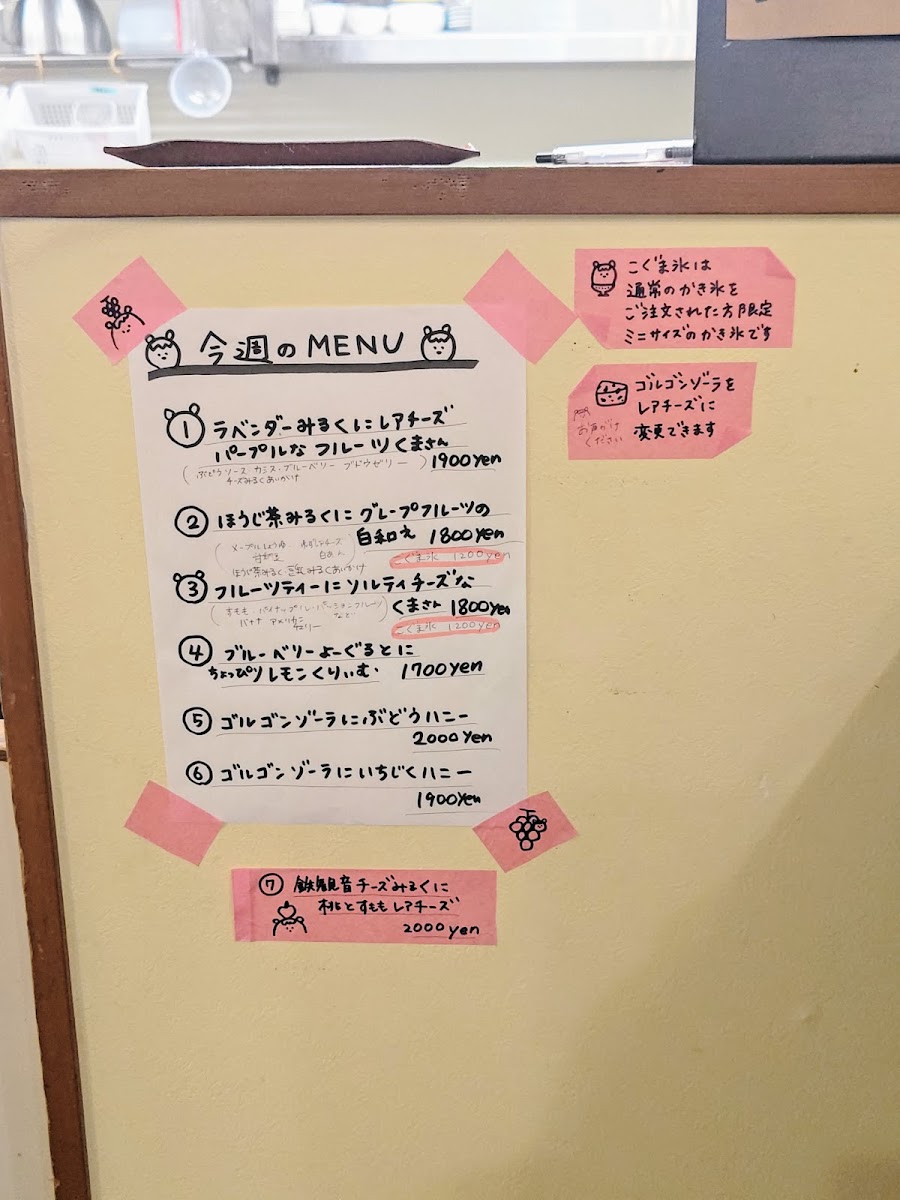 今週のMENU
① ラベンダーみるくにレアチーズ
パープルな フルーツくまさん
(ぶどうソース・カシス・ブルーベリー ブドウゼリー)
チーズみるくあいがけ
1900yen
② ほうじ茶みるくに グレープフルーツの
白和え 1800yen
(メープルしょうゆ・ レアチーズ
甘納豆 白あん)
ほうじ茶みるく・豆乳みるくあいがけ
こぐま氷 1200yen
③ フルーツティーに ソルティチーズな
くまさん 1800yen
(すもも・パイナップル・パッションフルーツ
バナナ アメリカンチェリー など)
こぐま氷 1200yen
④ ブルーベリーよーぐるとに
ちょっぴりレモンくりぃむ・ 1700yen
⑤ ゴルゴンゾーラにぶどうハニー
2000yen
⑥ ゴルゴンゾーラにいちじくハニー
1900yen
⑦ 鉄観音チーズみるくに
桃とすももレアチーズ
2000yen
こぐま氷は
通常のかき氷を
ご注文された方限定
ミニサイズのかき氷です
ゴルゴンゾーラを
レアチーズに
変更できます
お声がけ
ください